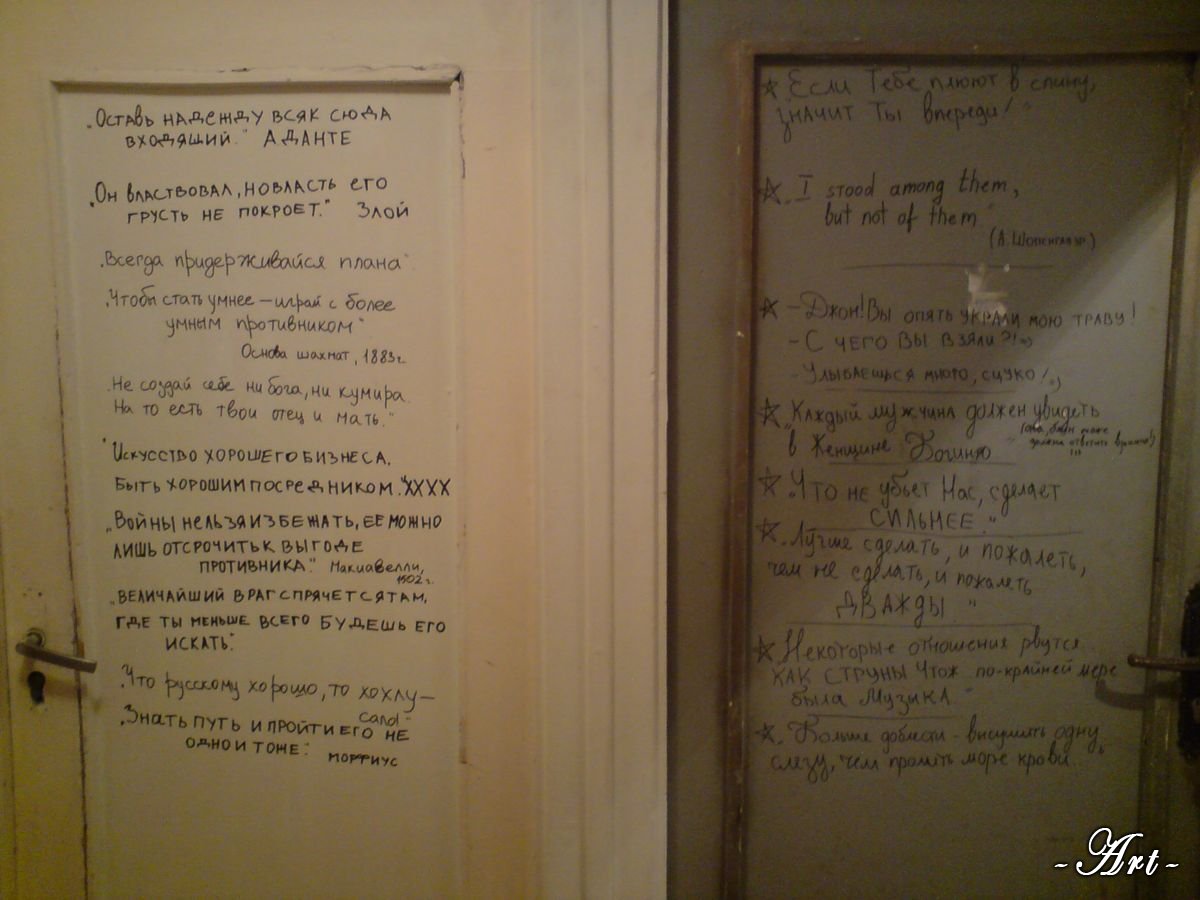 „Оставь надежду всяк сюда
входящий." А Данте
„Он властвовал, но власть его
грусть не покроет." Злой
„Всегда придерживайся плана"
„Чтобы стать умнее – играй с более
умным противником"
Основа шахмат, 1883г.
„Не создай себе ни бога, ни кумира.
На то есть твои отец и мать."
"Искусство хорошего бизнеса,
быть хорошим посредником." XXXX
„Войны нельзя избежать, её можно
лишь отсрочить к выгоде
противника." Макиавелли,
1502 г.
„Величайший враг спрячется там,
где ты меньше всего будешь его
искать."
„Что русскому хорошо, то хохлу –
сало"
„Знать путь и пройти его не
одно и тоже." Морфиус
☆ „Если Тебе плюют в спину,
значит Ты впереди!"
☆ „I stood among them,
but not of them"
(А. Шопенгауэр)
☆ – Джон! Вы опять украли мою траву!
– С чего вы взяли?!
– Улыбаешься много, сцуко!
☆ „Каждый мужчина должен увидеть
в Женщине Богиню"
(она, блин, тоже
должна ответить
☆ „Что не убьет Нас, сделает
СИЛЬНЕЕ."
☆ „Лучше сделать, и пожалеть,
чем не сделать, и пожалеть
ДВАЖДЫ."
☆ „Некоторые отношения рвутся
как струны Чтож по-крайней мере
была Музыка."
☆ „Больше доблести – высушить одну
слезу, чем пролить море крови..."
- Art -